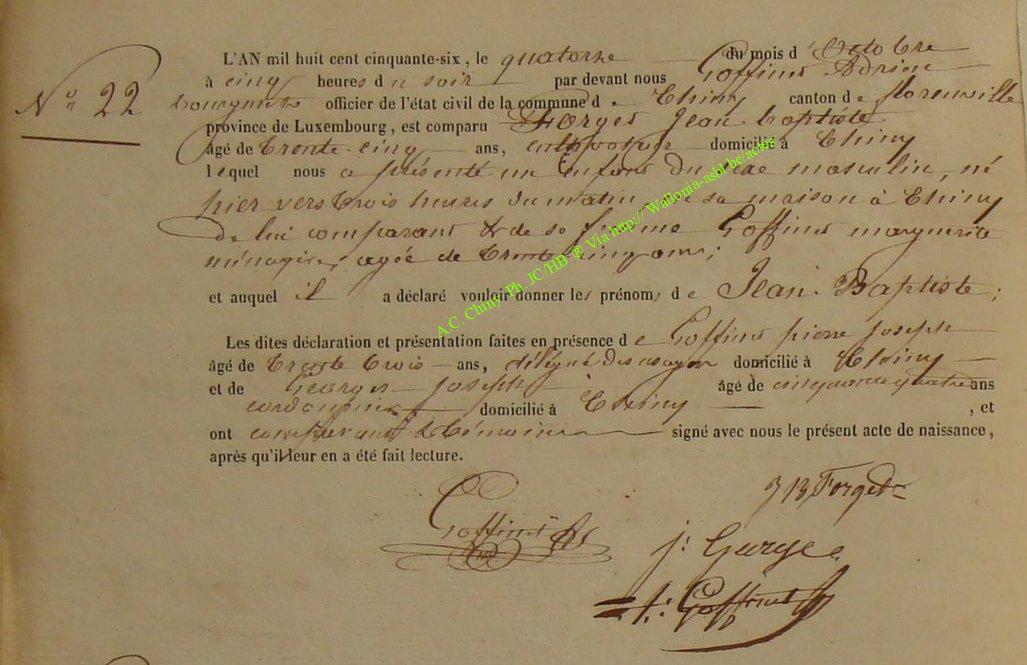 N° 22
L'AN mil huit cent cinquante-six, le quatorze du mois d'Octobre
à cinq heures du soir par devant nous Goffinet Adrien
bourgmestre officier de l'état civil de la commune de Chiny canton de florenville
province de Luxembourg, est comparu Forget Jean baptiste
âgé de trente-cinq ans, domicilié à Chiny
lequel nous a présenté un enfant du sexe masculin, né
hier vers trois heures du matin de sa maison à Chiny
de lui comparant & de sa femme Goffinet marguerite
ménagère, agée de trente cinq ans;
et auquel il a déclaré vouloir donner les prénoms de Jean-Baptiste;
Les dites déclaration et présentation faites en présence de Goffinet pierre joseph
âgé de trente trois ans, domicilié à Chiny
et de Georges joseph âgé de cinquante quatre ans
cordonnier domicilié à Chiny , et
ont comparant & témoins signé avec nous le présent acte de naissance,
après qu'il leur en a été fait lecture.
J B Forget
Goffinet
j. George
Goffinet
A.C. Chiny Ph. JC/HB ® Via http://Wallonia-asbl.be/actes